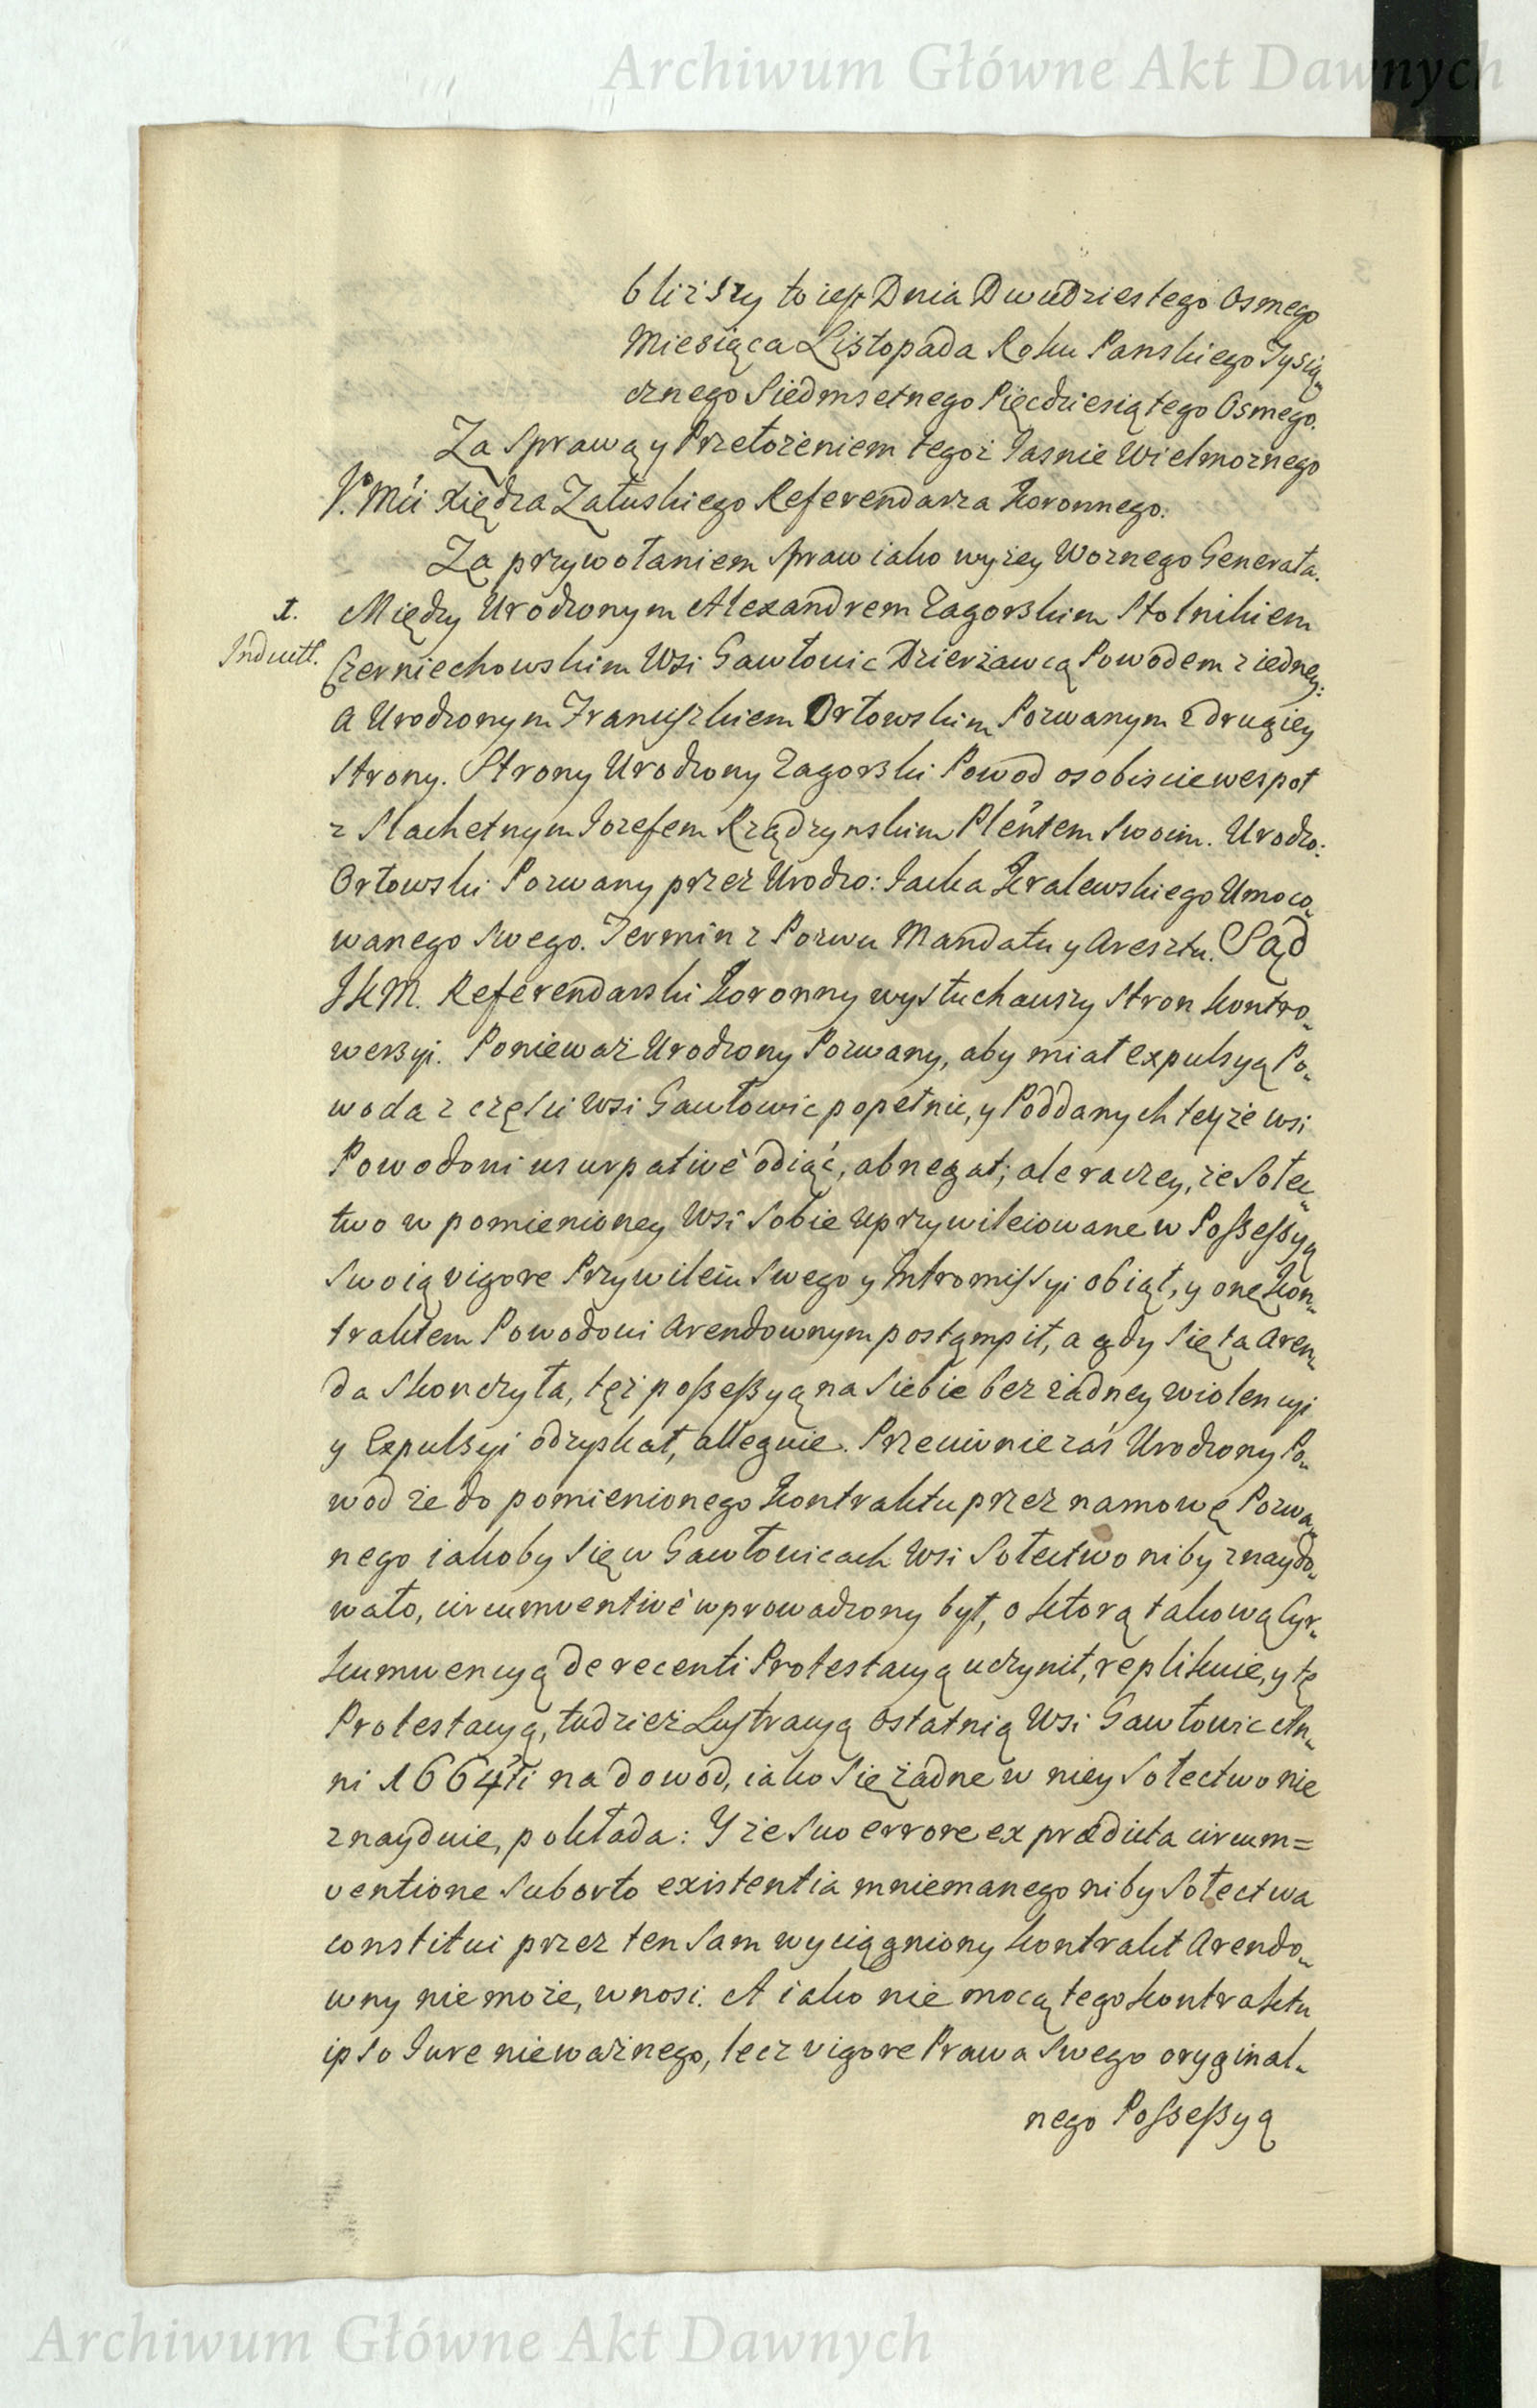 Archiwum Główne Akt Dawnych
bliższy to iest Dnia Dwudziestego Osmego
Miesiąca Listopada Roku Panskiego Tysią„
cznego Siedmsetnego Pięcdziesiątego Osmego.
Za Sprawą y Przełożeniem tegoż Jasnie Wielmożnego
Xiędza Załuskiego Referendarza Koronnego.
Za przywołaniem spraw iako wyżey Woznego Generała.
1. Między Urodzonym Alexandrem Zagorskim Stolnikiem
Inductł. Czerniechowskim Wsi Gawłowic Dzierżawcą Powodem z iedney:
A Urodzonym Franciszkiem Orłowskim Pozwanym z drugiey
Strony. Strony Urodzony Zagorski Powod osobiscie wespoł
z Slachetnym Jozefem Rządzynskim Pleńtem Swoim. Urodzo:
Orłowski Pozwany przez Urodzo: Jacka Kralewskiego Umoco„
wanego Swego. Termin z Pozwu Mandatu y Aresztu. Sąd
JKM. Referendarski Koronny wysłuchawszy Stron kontro„
wersyi. Ponieważ Urodzony Pozwany, aby miał expulsyą Po„
woda z częsci Wsi Gawłowic popełnic, y Poddanych teyże wsi
Powodowi usurpativè odiąć, abnegat; ale raczey, że Sołec„
two w pomienioney Wsi Sobie uprzywileiowane w Possessyą
Swoią vigore Przywileiu Swego y Intromissyi obiął, y onę kon„
traktem Powodowi Arendownym postąmpił, a gdy się ta Aren„
da Skonczyła, tęż possessyą na Siebie bez żadney wiolencyi
y Expulsyi odzyskał, alleguie. Przeciwnie zaś Urodzony Po„
wod że do pomienionego kontraktu przez namowę Pozwa„
nego iakoby się w Gawłowicach Wsi Sołectwo niby znaydo„
wało, circumventivè wprowadzony był, o ktorą takową Cyr„
kumwencyą de recenti Protestacyą uczynił, replikuie, y tę
Protestacyą, tudzież Lustracyą ostatnią Wsi Gawłowic An„
ni 1664ti na dowod, iako się żadne w niey Sołectwo nie
znayduie, pokłada: Y że Suo errore ex prædicta circum=
ventione suborto existentia mniemanego niby Sołectwa
constitui przez ten Sam wyciągniony kontrakt Arendo„
wny nie może, wnosi. A iako nie mocą tego kontraktu
ipso Jure nieważnego, lecz vigore Prawa Swego oryginal„
nego Possessyą
Archiwum Główne Akt Dawnych